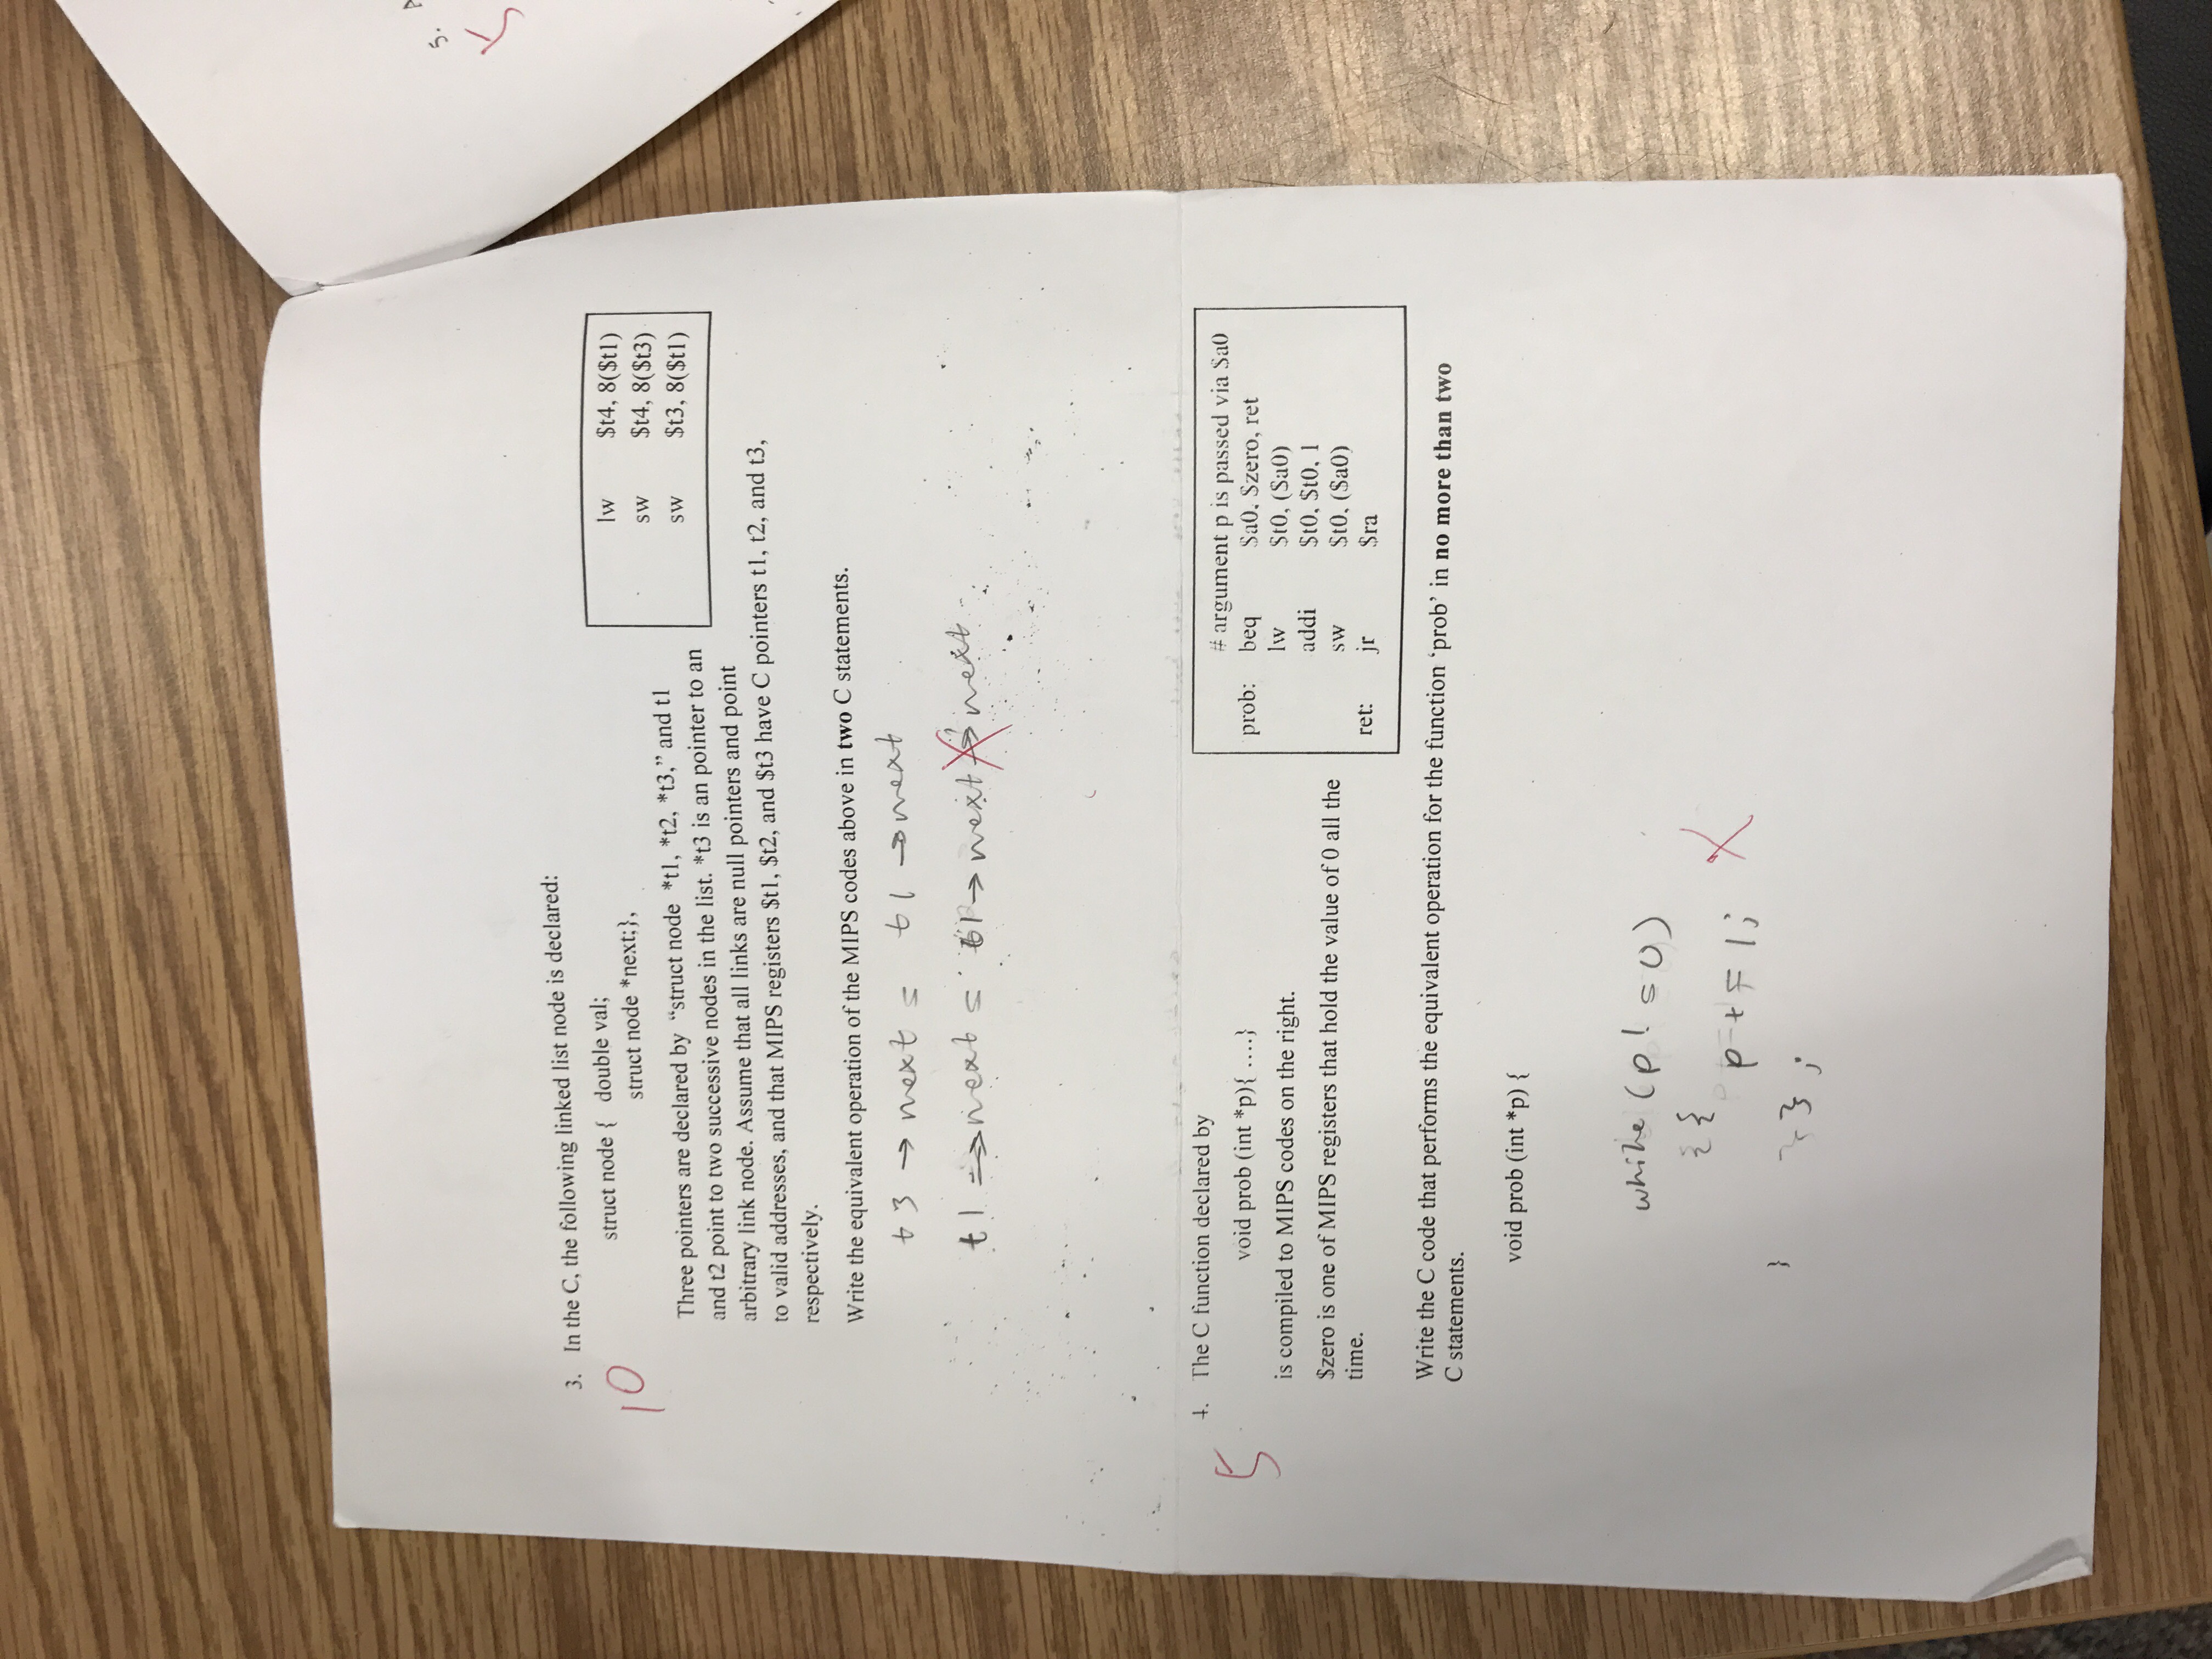 3. In the C, the following linked list node is declared:
10
struct node { double val;
struct node *next;},
lw $t4, 8($t1)
sw $t4, 8($t3)
sw $t3, 8($t1)
Three pointers are declared by “struct node *t1, *t2, *t3,” and t1
and t2 point to two successive nodes in the list. *t3 is an pointer to an
arbitrary link node. Assume that all links are null pointers and point
to valid addresses, and that MIPS registers $t1, $t2, and $t3 have C pointers t1, t2, and t3,
respectively.
Write the equivalent operation of the MIPS codes above in two C statements.
t3 → next = t1 → next
t1 → next = t1 → next → next
4. The C function declared by
5
void prob (int *p){ ....}
is compiled to MIPS codes on the right.
$zero is one of MIPS registers that hold the value of 0 all the
time.
# argument p is passed via $a0
prob: beq $a0, $zero, ret
lw $t0, ($a0)
addi $t0, $t0, 1
sw $t0, ($a0)
ret: jr $ra
Write the C code that performs the equivalent operation for the function ‘prob’ in no more than two
C statements.
void prob (int *p) {
while (p != 0)
{{
p += 1; X
} }} ;
5. A
5